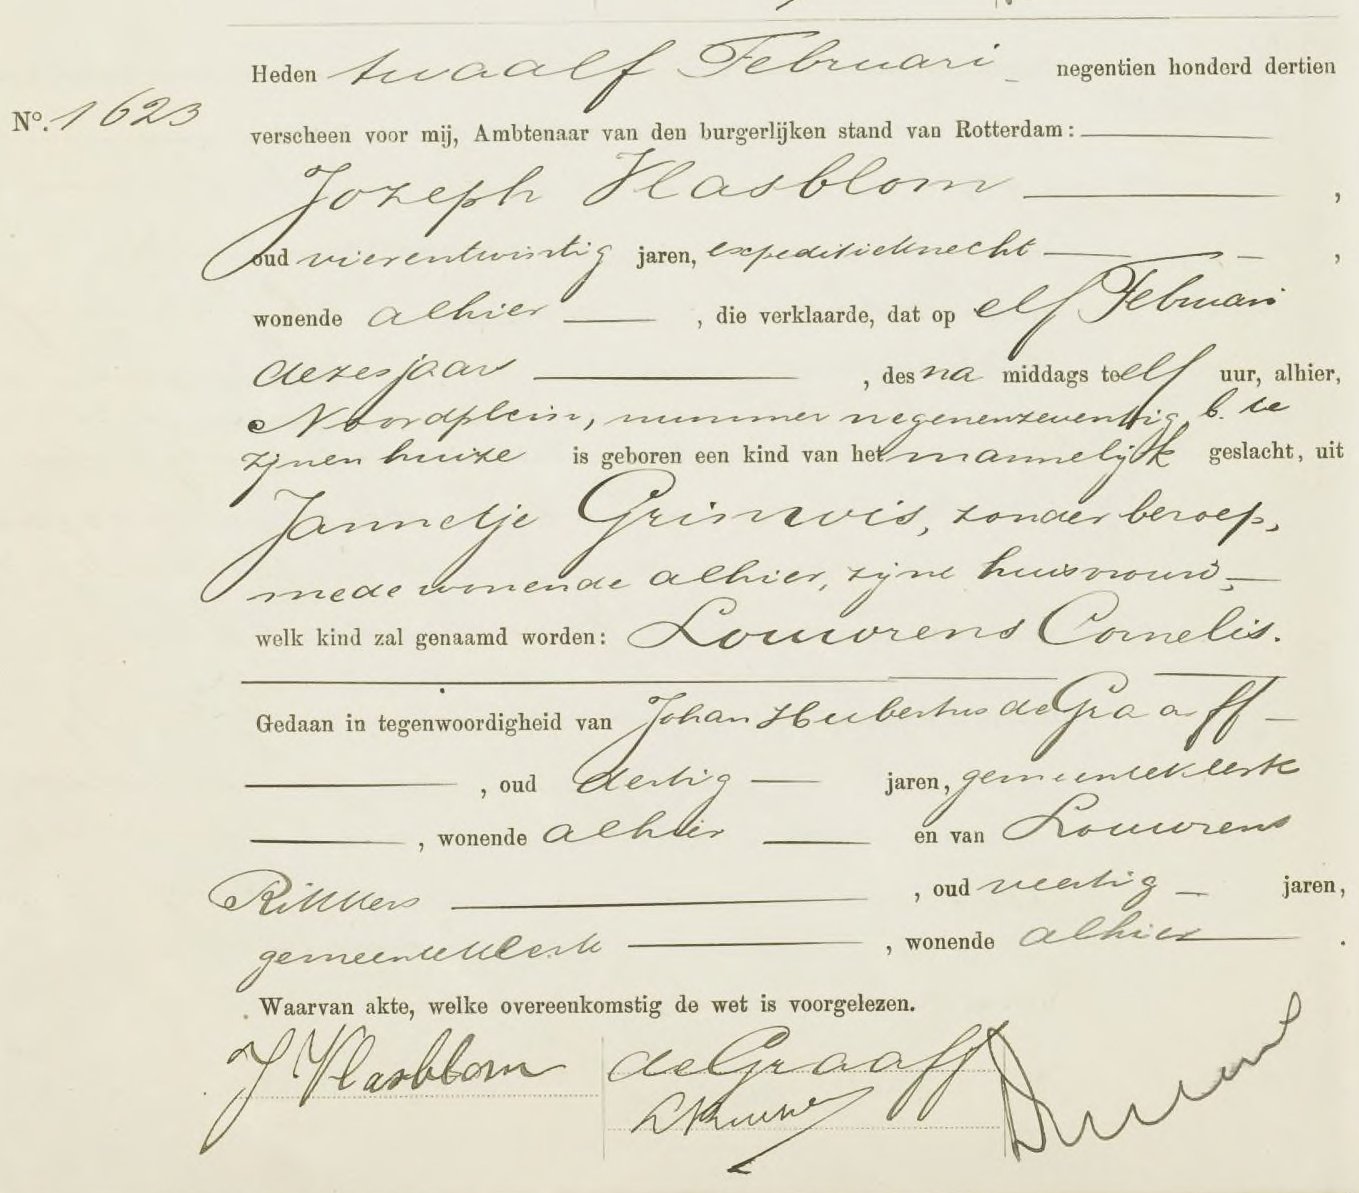 Heden twaalf Februari negentien honderd dertien
No. 1623
verscheen voor mij, Ambtenaar van den burgerlijken stand van Rotterdam:
Jozeph Vlasblom,
oud vierentwintig jaren, expeditieknecht,
wonende alhier, die verklaarde, dat op elf Februari
dezes jaars, des na middags te elf uur, alhier,
Noordplein, nummer negenenzeventig b. te
zijnen huize is geboren een kind van het mannelijk geslacht, uit
Jannetje Grimwis, zonder beroep,
mede wonende alhier, zijne huisvrouw,
welk kind zal genaamd worden: Louwrens Cornelis.
Gedaan in tegenwoordigheid van Johan Hubertus de Graaff
, oud dertig jaren, gemeenteklerk
, wonende alhier en van Louwrens
Rikkers, oud veertig jaren,
gemeenteklerk, wonende alhier.
Waarvan akte, welke overeenkomstig de wet is voorgelezen.
J Vlasblom de Graaff